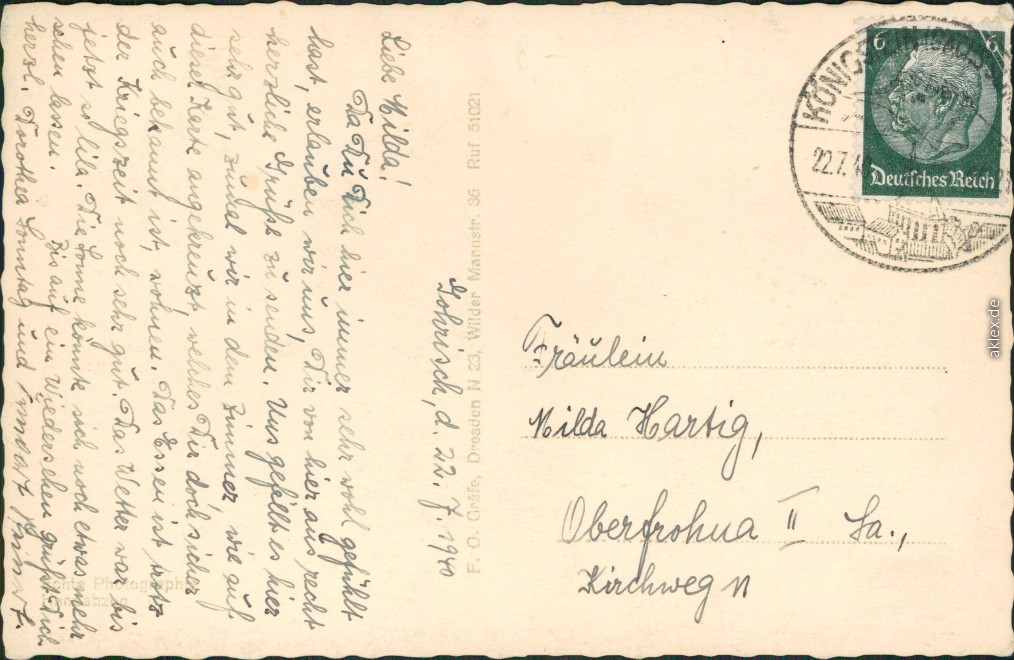 Gohrisch, d. 22. 7. 1940
Liebe Milda!
Da Du Dich hier immer sehr wohl gefühlt
hast, erlauben wir uns, Dir von hier aus recht
herzliche Grüße zu senden. Uns gefällt es hier
sehr gut, zumal wir in dem Zimmer, wie auf
dieser Karte angekreuzt welches Dir doch sicher
auch bekannt ist, wohnen. Das Essen ist trotz
der Kriegszeit noch sehr gut. Das Wetter war bis
jetzt so lila. Die Sonne könnte sich noch etwas mehr
sehen lassen. Bis auf ein Wiedersehen grüßt Dich
herzl. Dorothea Sonntag und
Echte Photographie
Handabzug
F. O. Gräfe, Dresden N 23, Wilder Mannstr. 35 Ruf 51021
KÖNIGSTEIN
22.7.
6 6
Deutsches Reich
Fräulein
Milda Hartig,
Oberfrohna II Sa.,
Kirchweg 11
aklex.de